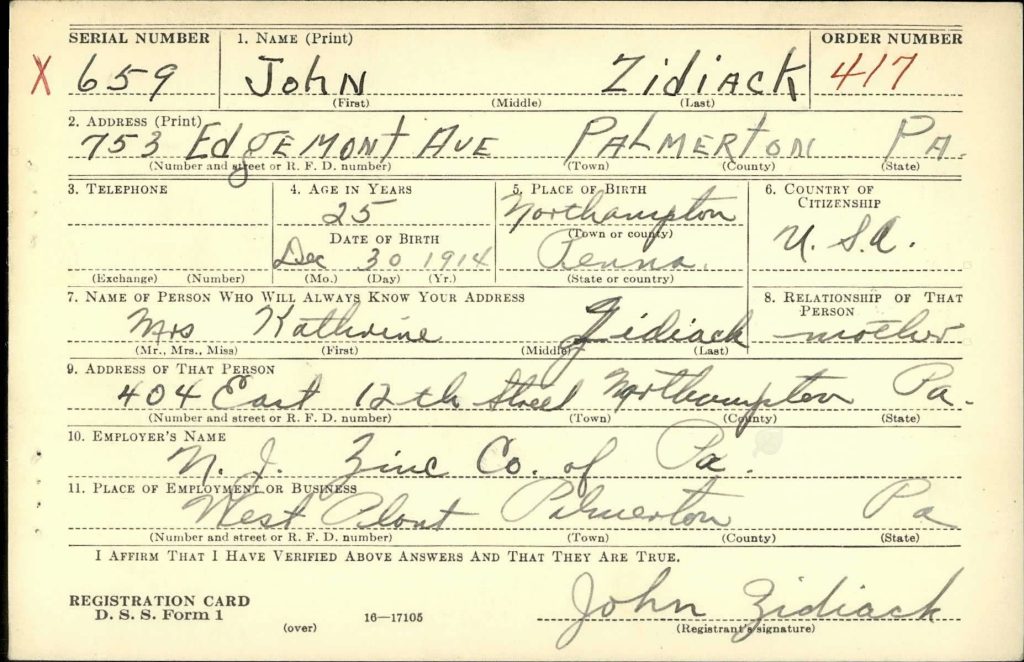 SERIAL NUMBER 1. NAME (Print) ORDER NUMBER
X 659 John Zidiack 417
(First) (Middle) (Last)
2. ADDRESS (Print)
753 Edgemont Ave Palmerton Pa.
(Number and street or R. F. D. number) (Town) (County) (State)
3. TELEPHONE 4. AGE IN YEARS 5. PLACE OF BIRTH 6. COUNTRY OF CITIZENSHIP
25 Northampton
DATE OF BIRTH (Town or county) U. S. A.
Dec 30 1914 Penna.
(Exchange) (Number) (Mo.) (Day) (Yr.) (State or country)
7. NAME OF PERSON WHO WILL ALWAYS KNOW YOUR ADDRESS 8. RELATIONSHIP OF THAT PERSON
Mrs Kathrine Zidiack mother
(Mr., Mrs., Miss) (First) (Middle) (Last)
9. ADDRESS OF THAT PERSON
404 East 12th Street Northampton Pa.
(Number and street or R. F. D. number) (Town) (County) (State)
10. EMPLOYER'S NAME
N. J. Zinc Co. of Pa.
11. PLACE OF EMPLOYMENT OR BUSINESS
West Plant Palmerton Pa
(Number and street or R. F. D. number) (Town) (County) (State)
I AFFIRM THAT I HAVE VERIFIED ABOVE ANSWERS AND THAT THEY ARE TRUE.
REGISTRATION CARD John Zidiack
D. S. S. Form 1 16—17105
(over) (Registrant's signature)